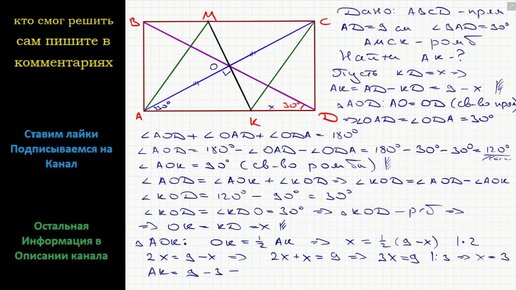 кто смог решить
сам пишите в
комментариях
Ставим лайки
Подписываемся на
Канал
Остальная
Информация в
Описании канала
B M C
O
A 30° K x 30° D
Дано: ABCD - прям
AD = 9 см ∠BAD = 30°
AMCK - ромб
Найти AK - ?
Пусть KD = x ⇒
AK = AD - KD = 9 - x
△AOD: AO = OD (св-во пр
⇒ ∠OAD = ∠ODA = 30°
∠AOD + ∠OAD + ∠ODA = 180°
∠AOD = 180° - ∠OAD - ∠ODA = 180° - 30° - 30° = 120°
∠AOK = 90° (св-во ромба)
∠AOD = ∠AOK + ∠KOD ⇒ ∠KOD = ∠AOD - ∠AOK
∠KOD = 120° - 90° = 30°
∠KOD = ∠KDO = 30° ⇒ △KOD - р/б ⇒
⇒ OK = KD = x
△AOK: OK = ½ AK ⇒ x = ½ (9 - x) | · 2
2x = 9 - x ⇒ 2x + x = 9 ⇒ 3x = 9 | : 3 ⇒ x = 3
AK = 9 - 3 =